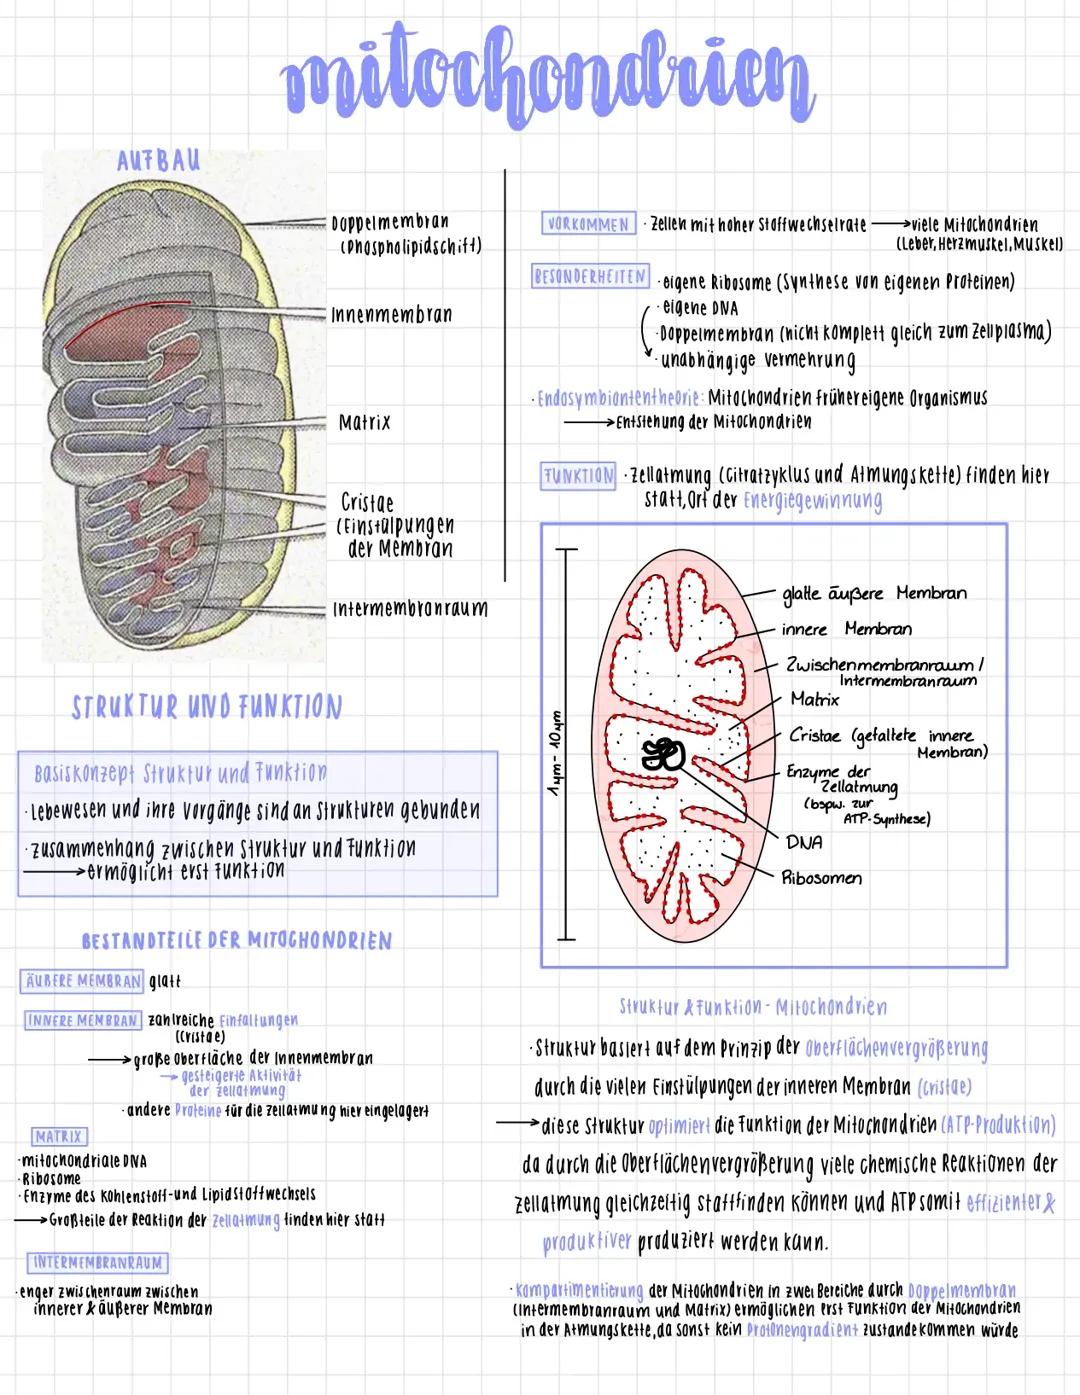 mitochondrien
AUFBAU
Doppelmembran
(Phospholipidschift)
Innenmembran
Matrix
Cristae
(Einstülpungen
der Membran
Intermembranraum
VORKOMMEN · Zellen mit hoher Stoffwechselrate → viele Mitochondrien
(Leber, Herzmuskel, Muskel)
BESONDERHEITEN · eigene Ribosome (Synthese von eigenen Proteinen)
· eigene DNA
· Doppelmembran (nicht komplett gleich zum Zellplasma)
· unabhängige Vermehrung
· Endosymbiontentheorie: Mitochondrien früher eigene Organismus
→ Entstehung der Mitochondrien
FUNKTION · Zellatmung (Citratzyklus und Atmungskette) finden hier
statt, Ort der Energiegewinnung
1 µm - 10 µm
glatte äußere Membran
innere Membran
Zwischenmembranraum /
Intermembranraum
Matrix
Cristae (gefaltete innere
Membran)
Enzyme der
Zellatmung
(bspw. zur
ATP-Synthese)
DNA
Ribosomen
STRUKTUR UND FUNKTION
Basiskonzept Struktur und Funktion
· Lebewesen und ihre Vorgänge sind an Strukturen gebunden
· Zusammenhang zwischen Struktur und Funktion
→ ermöglicht erst Funktion
BESTANDTEILE DER MITOCHONDRIEN
ÄUßERE MEMBRAN glatt
INNERE MEMBRAN zahlreiche Einfaltungen
(Cristae)
→ große Oberfläche der Innenmembran
→ gesteigerte Aktivität
der Zellatmung
· andere Proteine für die Zellatmung hier eingelagert
MATRIX
· mitochondriale DNA
· Ribosome
· Enzyme des Kohlenstoff- und Lipidstoffwechsels
→ Großteile der Reaktion der Zellatmung finden hier statt
INTERMEMBRANRAUM
· enger Zwischenraum zwischen
innerer & äußerer Membran
Struktur & Funktion - Mitochondrien
· Struktur basiert auf dem Prinzip der Oberflächenvergrößerung
durch die vielen Einstülpungen der inneren Membran (Cristae)
→ diese Struktur optimiert die Funktion der Mitochondrien (ATP-Produktion)
da durch die Oberflächenvergrößerung viele chemische Reaktionen der
Zellatmung gleichzeitig stattfinden können und ATP somit effizienter &
produktiver produziert werden kann.
· Kompartimentierung der Mitochondrien in zwei Bereiche durch Doppelmembran
(Intermembranraum und Matrix) ermöglichen erst Funktion der Mitochondrien
in der Atmungskette, da sonst kein Protonengradient zustande kommen würde